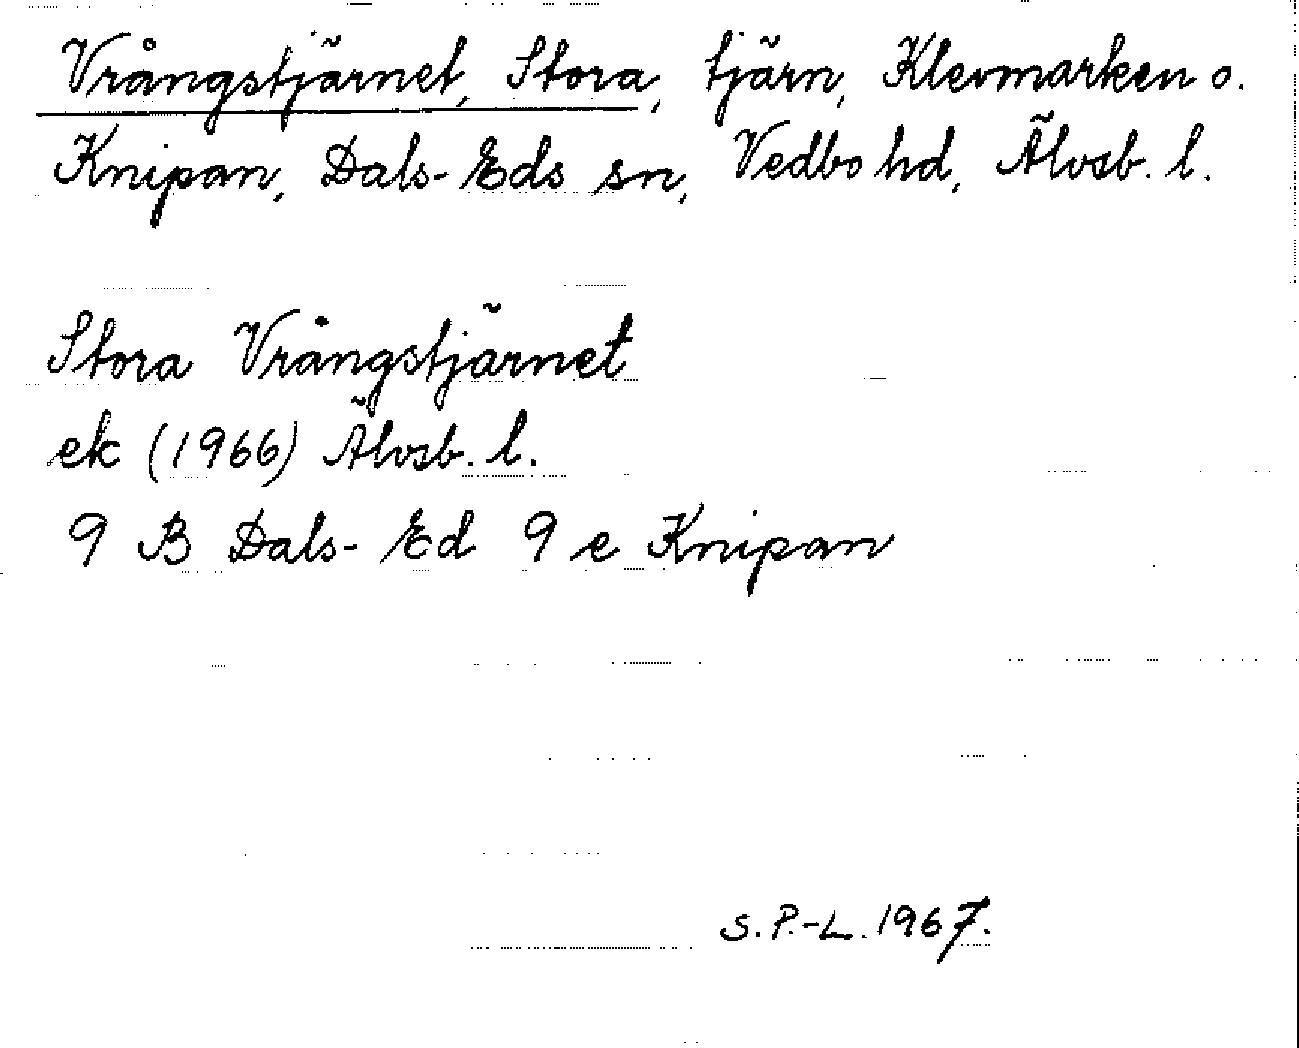 Vrångstjärnet, Stora, tjärn, Klevmarken o.
Knipan, Dals-Eds sn, Vedbo hd, Älvsb. l.
Stora Vrångstjärnet
ek (1966) Älvsb. l.
9 B Dals-Ed 9 e Knipan
S.P.-L. 1967.